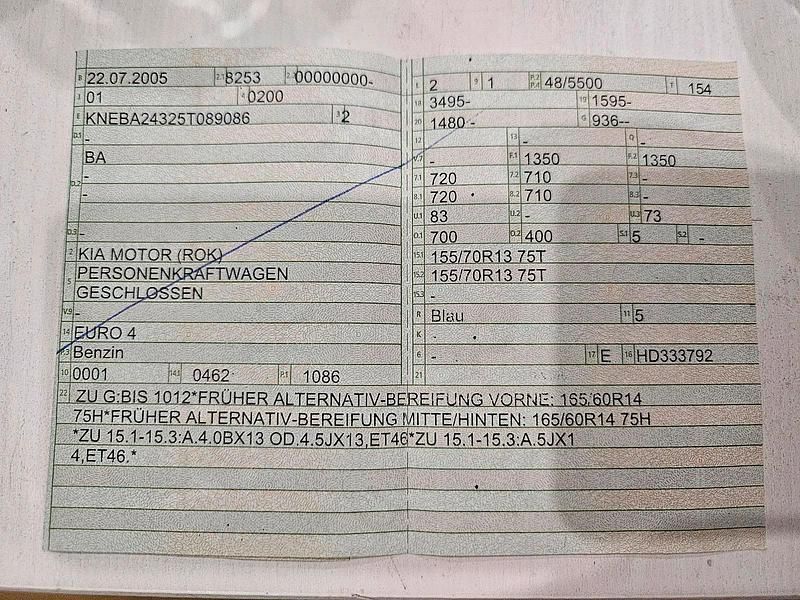 B 22.07.2005 2.1 8253 00000000-
J 01 4 0200
E KNEBA24325T089086 3 2
D.1 -
BA
D.2 -
-
D.3 -
2 KIA MOTOR (ROK)
5 PERSONENKRAFTWAGEN
GESCHLOSSEN
V.9 -
14 EURO 4
P.3 Benzin
10 0001 14.1 0462 P.1 1086
L 2 9 1 P.2 P.4 48/5500 T 154
18 3495- 19 1595-
20 1480 - G 936--
12 - 13 - Q -
V.7 - F.1 1350 F.2 1350
7.1 720 7.2 710 7.3 -
8.1 720 8.2 710 8.3 -
U.1 83 U.2 - U.3 73
O.1 700 O.2 400 S.1 5 S.2 -
15.1 155/70R13 75T
15.2 155/70R13 75T
15.3 -
R Blau 11 5
K -
6 - 17 E 16 HD333792
21
22 ZU G:BIS 1012*FRÜHER ALTERNATIV-BEREIFUNG VORNE: 165/60R14
75H*FRÜHER ALTERNATIV-BEREIFUNG MITTE/HINTEN: 165/60R14 75H
*ZU 15.1-15.3:A.4.0BX13 OD.4.5JX13,ET46*ZU 15.1-15.3:A.5JX1
4,ET46.*